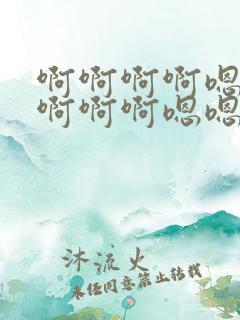 啊啊啊啊嗯
啊啊啊嗯嗯
沐流火
未经同意禁止转载